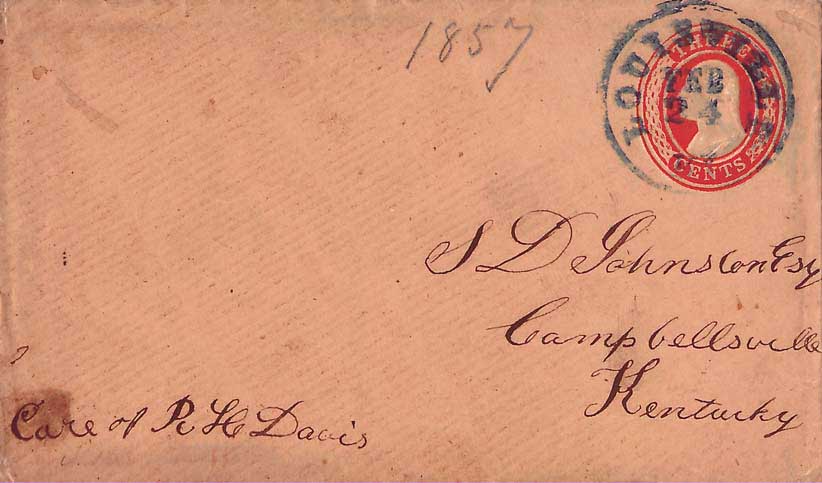 1857
LOUISVILLE
FEB
24
THREE
CENTS
S D Johnston Esq
Campbellsville
Kentucky
Care of R H Davis